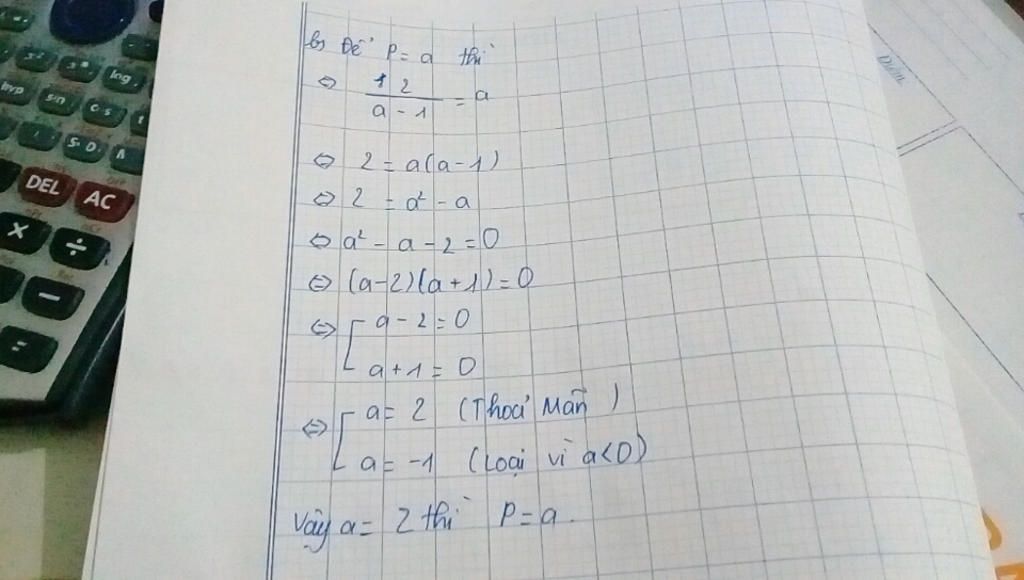 b, Để P = a thì
⇔ 2 / (a - 1) = a
⇔ 2 = a(a - 1)
⇔ 2 = a² - a
⇔ a² - a - 2 = 0
⇔ (a - 2)(a + 1) = 0
⇔ [ a - 2 = 0
a + 1 = 0
⇔ [ a = 2 (Thoả Mãn)
a = -1 (Loại vì a < 0)
Vậy a = 2 thì P = a.
Điểm
hyp
sin
cos
log
DEL
AC
×
÷
−
=